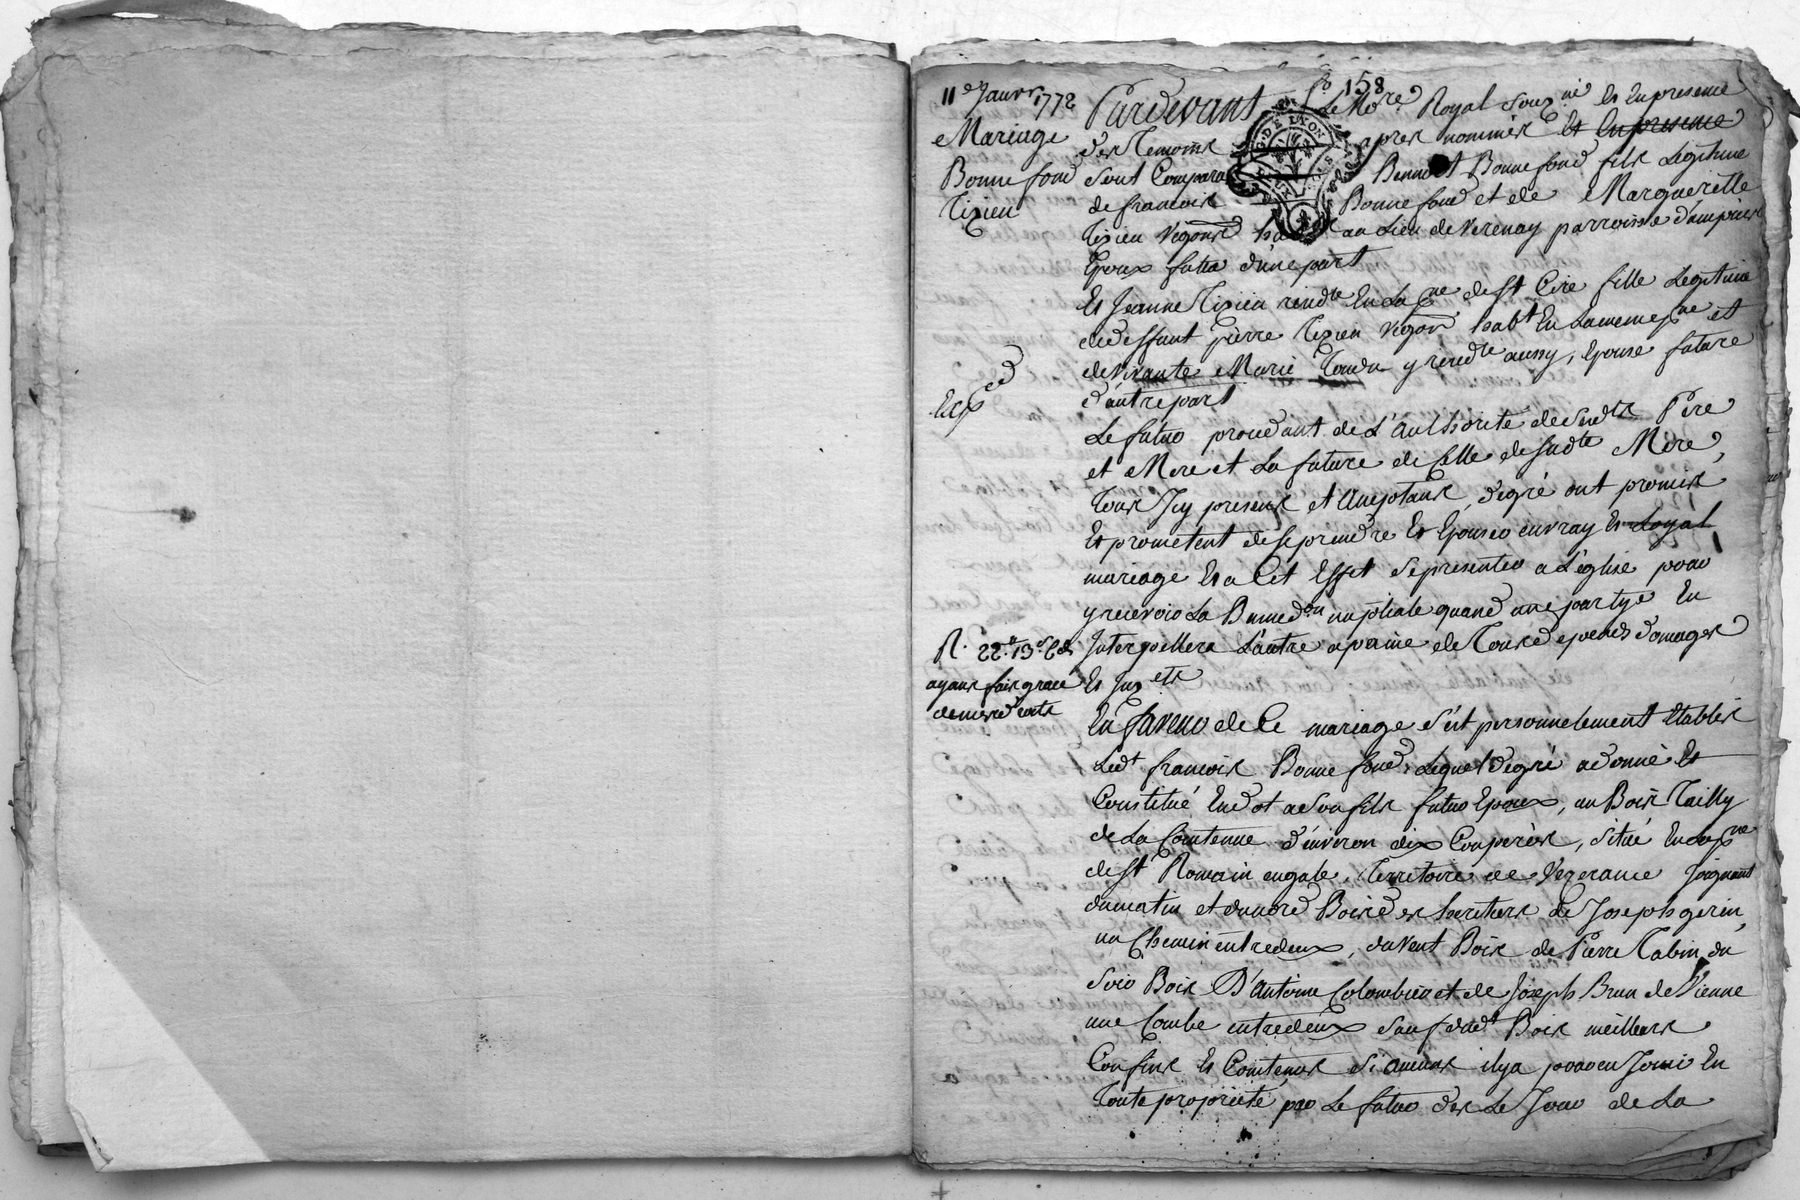 158
11e Janvr 1772
Mariage
Bonnefond
Tixien
Expéd
R. 22# 13s 6d
ayant fait grace
de mesd droits
Pardevant Le No.re Royal Souz.né Et En presence
des Temoins apres nommés et en presence
sont Compara Benoit Bonnefond fils Legitime
de francois Bonnefond et de Margueritte
Tixien Vigons au Lieu de Verenay parroisse d'ampuis
Epoux futur d'une part
Et Jeanne Tixien resid.te En La p.ne de St Cire fille Legitime
de deffunt pierre Tixien Vigon hab.t En La meme p.ne et
de vivante Marie y resid.te aussy, Epouse future
d'autre part
Le futur procedant de L'authorité de Sesd.ts Pere
et Mere et La future de Celle de Sad.te Mere,
Tous Icy presens et de gré ont promis
Et prometent de se prendre Et Epouser en vray Et Loyal
mariage Et a Cet Effet se presenter a L'eglise pour
y recevoir La Bened.on nuptiale quand une partye En
Interpellera L'autre a peine de Tous depends domages
Et Int.ets
En faveur de Ce mariage s'est personnelement Etablis
Led.t francois Bonnefond, Lequel de gré a donné Et
Constitué En dot a Son fils futur Epoux, un Bois Tailly
de La Contenue d'environ dix Couperés, situé En La p.ne
de St Romain en gale, Territoire de Vezerance Joignant
du matin et du nord Bois des heritiers de Joseph gerin,
un Chemin entredeux, du vent Bois de Pierre Tabin, du
Soir Bois D'antoine Colombier et de Joseph Brun de Vienne
une Combe entredeux sauf dud.t Bois meilleurs
Confins Et Contenus si aucuns il y a pour en Jouir En
Toute proprieté par Le futur des Le Jour de La